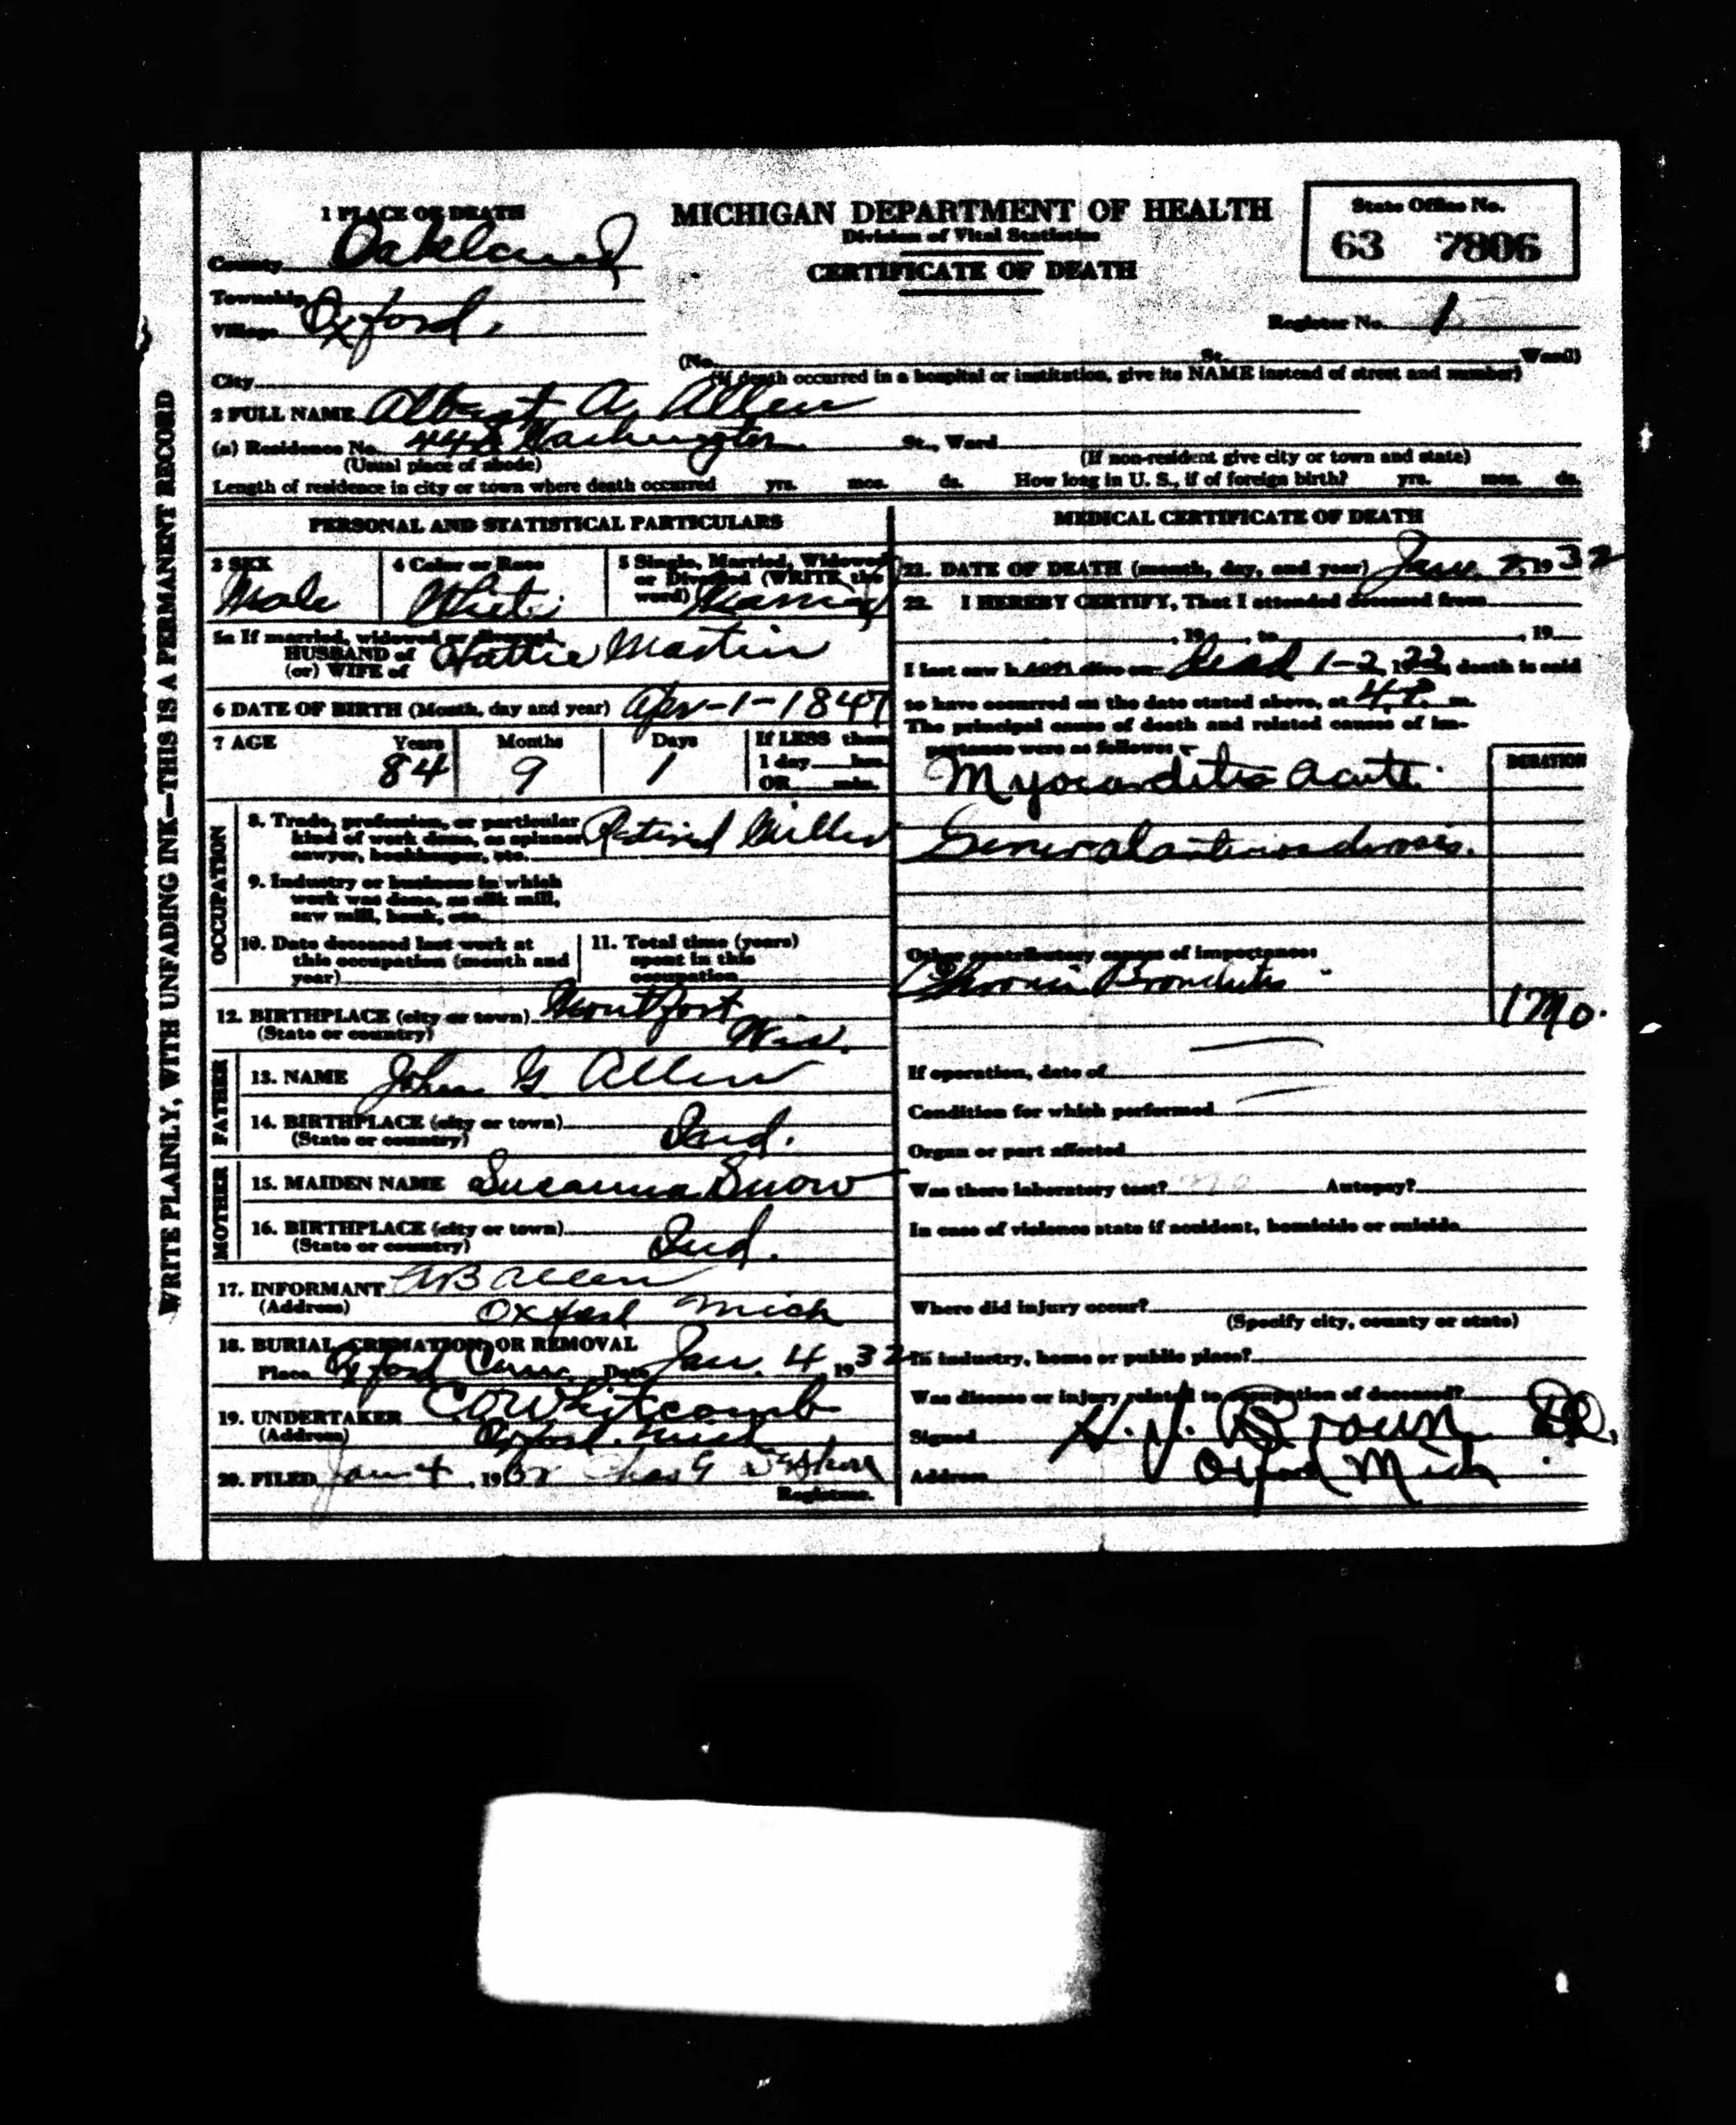 1 PLACE OF DEATH
County Oakland
Township
Village Oxford,
City
MICHIGAN DEPARTMENT OF HEALTH
Division of Vital Statistics
CERTIFICATE OF DEATH
State Office No.
63 7806
Register No. 1
(No. St. Ward)
(If death occurred in a hospital or institution, give its NAME instead of street and number)
2 FULL NAME Albert A. Allen
(a) Residence No. Washington St., Ward
(Usual place of abode) (If non-resident give city or town and state)
Length of residence in city or town where death occurred yrs. mos. ds. How long in U. S., if of foreign birth? yrs. mos. ds.
WRITE PLAINLY, WITH UNFADING INK—THIS IS A PERMANENT RECORD
PERSONAL AND STATISTICAL PARTICULARS
3 SEX
Male
4 Color or Race
White
5 Single, Married, Widowed
or Divorced (WRITE the
word) Married
5a If married, widowed or divorced
HUSBAND of
(or) WIFE of Hattie Martin
6 DATE OF BIRTH (Month, day and year) Apr-1-1847
7 AGE Years Months Days If LESS than
1 day hrs.
OR min.
84 9 1
OCCUPATION
8. Trade, profession, or particular
kind of work done, as spinner,
sawyer, bookkeeper, etc. Retired Miller
9. Industry or business in which
work was done, as silk mill,
saw mill, bank, etc.
10. Date deceased last work at
this occupation (month and
year)
11. Total time (years)
spent in this
occupation
12. BIRTHPLACE (city or town) Montfort
(State or country) Wis.
FATHER
13. NAME John G Allen
14. BIRTHPLACE (city or town)
(State or country) Ind.
MOTHER
15. MAIDEN NAME Susanna Snow
16. BIRTHPLACE (city or town)
(State or country) Ind.
17. INFORMANT AB Allen
(Address) Oxford Mich
18. BURIAL, CREMATION, OR REMOVAL
Place Oxford Cem. Date Jan. 4 1932
19. UNDERTAKER CO Whitcomb
(Address) Oxford. Mich
20. FILED Jan 4, 1932 Chas G
Registrar.
MEDICAL CERTIFICATE OF DEATH
21. DATE OF DEATH (month, day, and year) Jan. 2, 1932
22. I HEREBY CERTIFY, That I attended deceased from
, 19 , to , 19
I last saw h him alive on Dead 1-2, 1932, death is said
to have occurred on the date stated above, at 4 P. m.
The principal cause of death and related causes of im-
portance were as follows:
DURATION
Myocarditis Acute.
General arteriosclerosis.
Other contributory causes of importance:
Chronic Bronchitis
1 Mo.
If operation, date of
Condition for which performed
Organ or part affected
Was there laboratory test? no Autopsy?
In case of violence state if accident, homicide or suicide
Where did injury occur?
(Specify city, county or state)
In industry, home or public place?
Was disease or injury related to occupation of deceased?
Signed H. J. Brown
Address Oxford Mich.